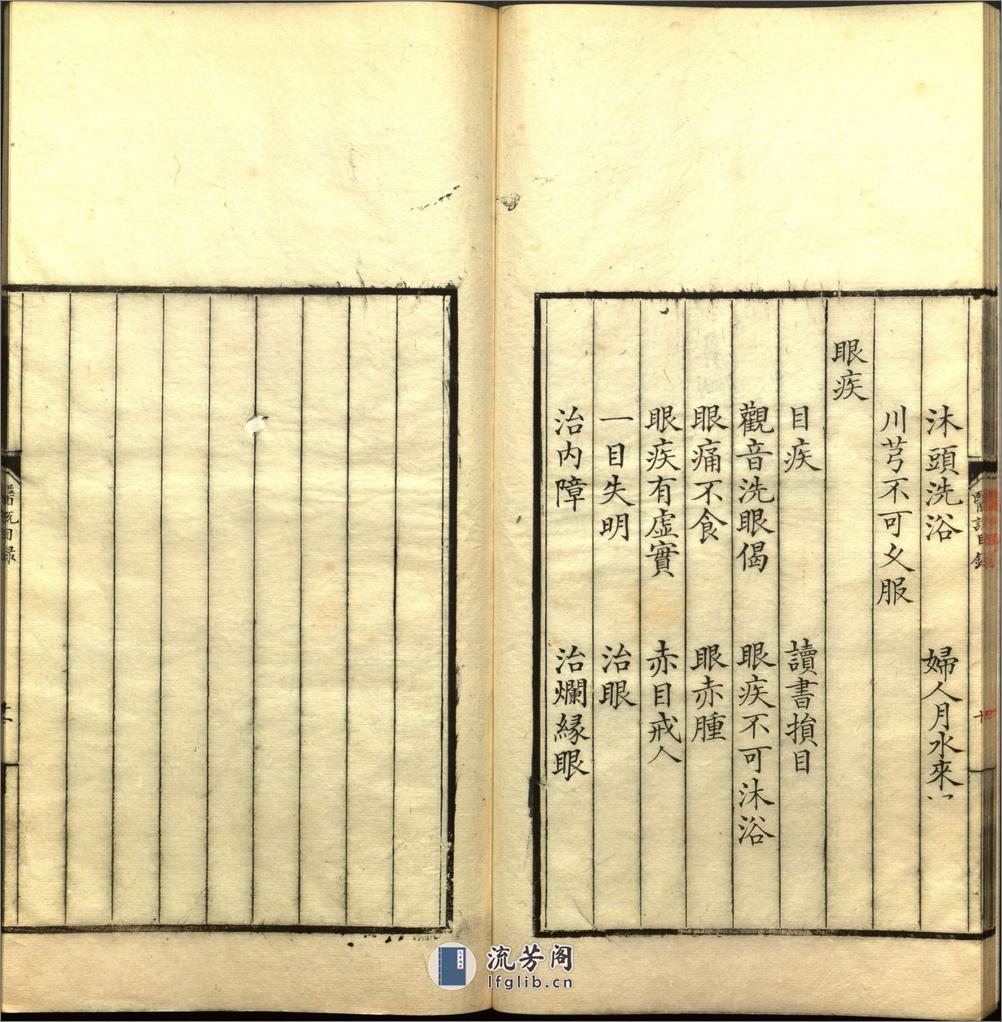 沐頭洗浴 婦人月水來
川芎不可久服
眼疾
目疾 讀書損目
觀音洗眼偈 眼疾不可沐浴
眼痛不食 眼赤腫
眼疾有虛實 赤目戒人
一目失明 治眼
治內障 治爛緣眼
目錄
流芳阁
lfglib.cn